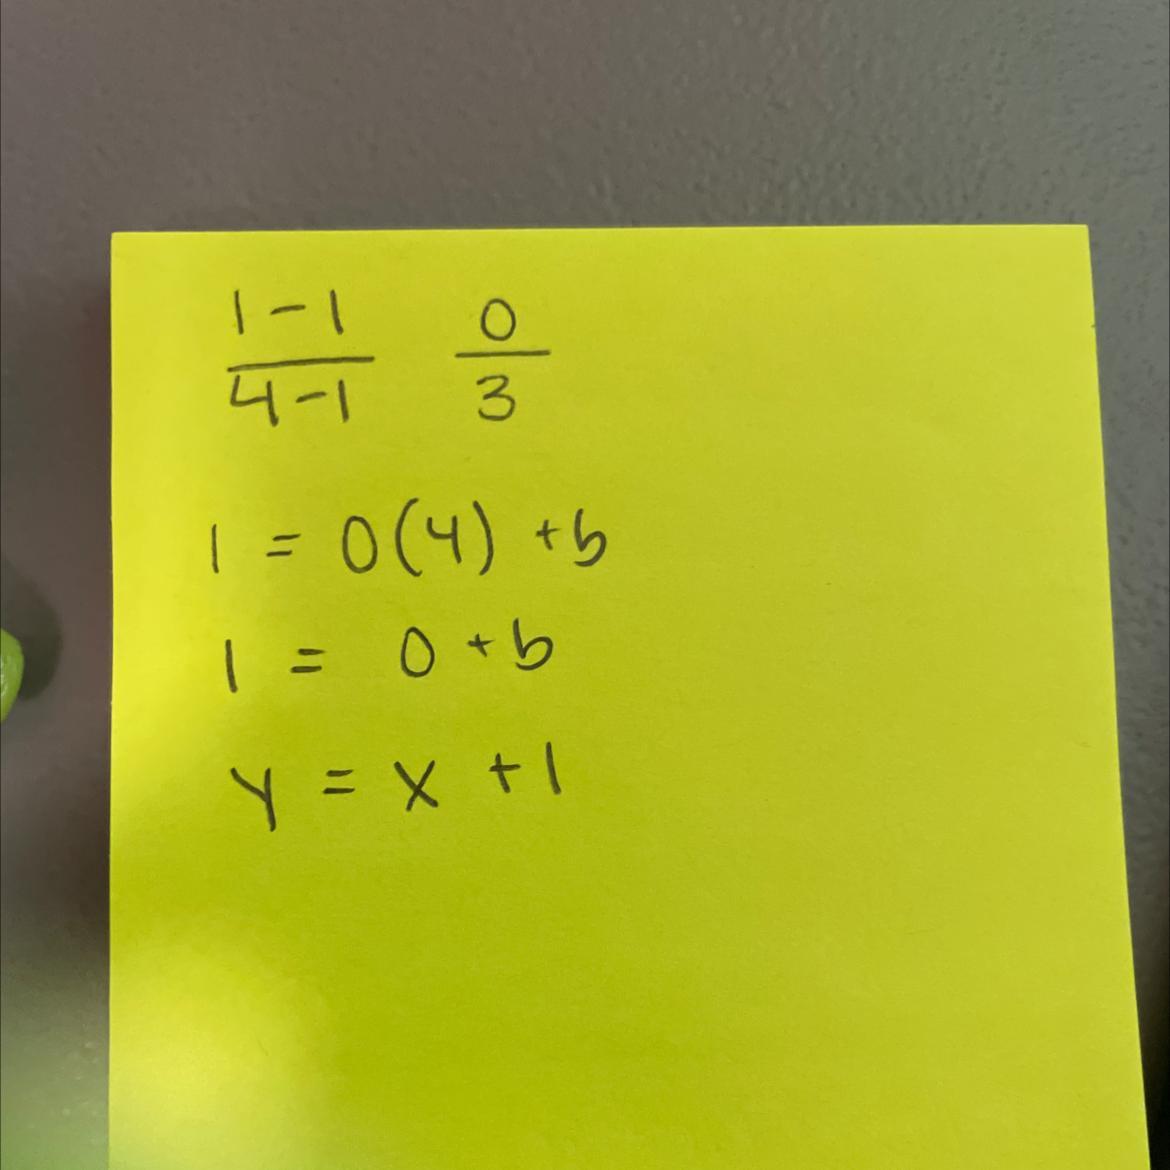 1-1/4-1 0/3
1 = 0(4) +b
1 = 0 +b
y = x +1